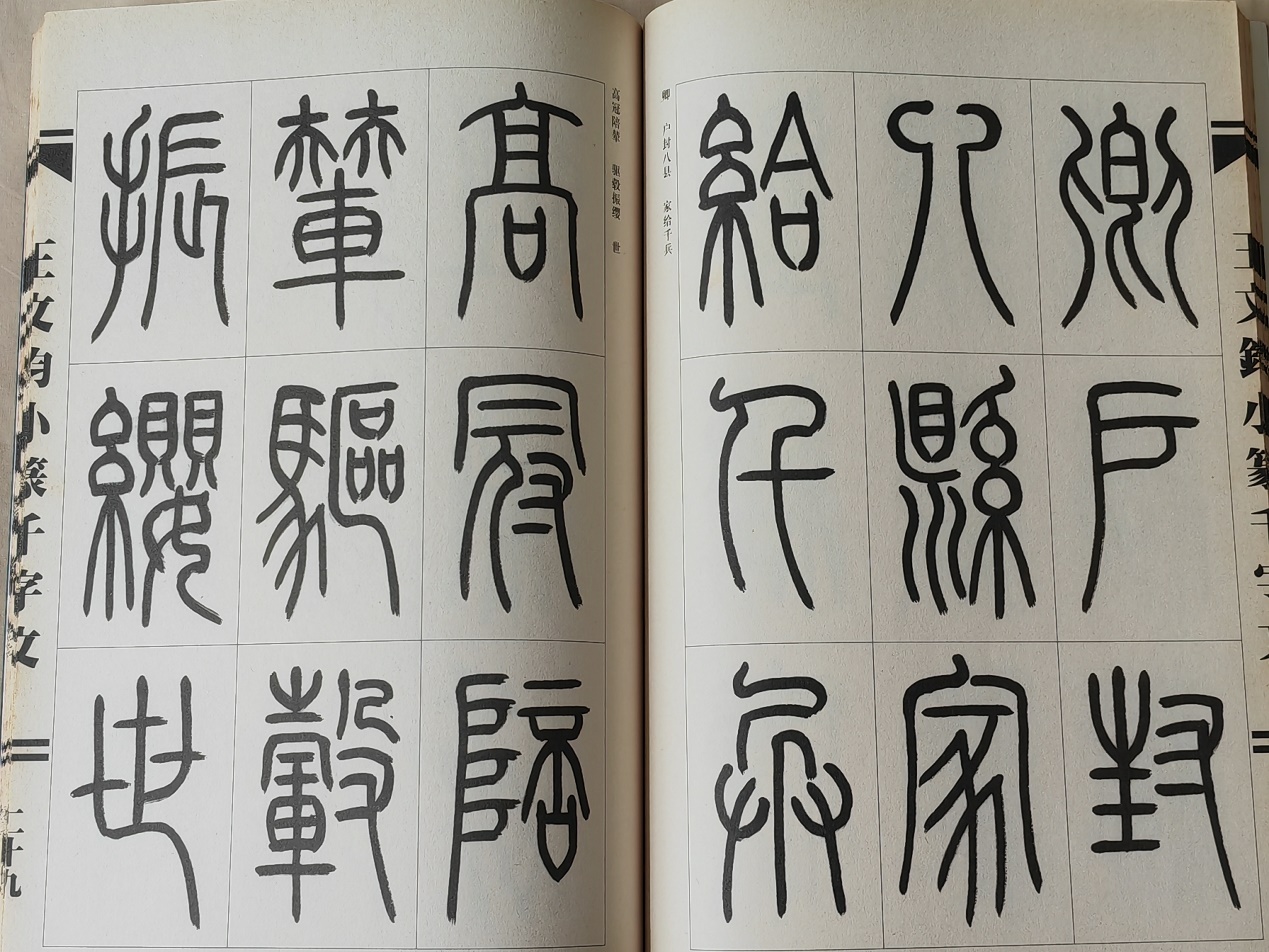 王文鈞小篆千字文
卿户封
八縣家
給千兵
卿 户封八县 家给千兵
高冠陪辇 驱毂振缨 世
高冠陪
輦驅轂
振纓世
王文鈞小篆千字文
二十九